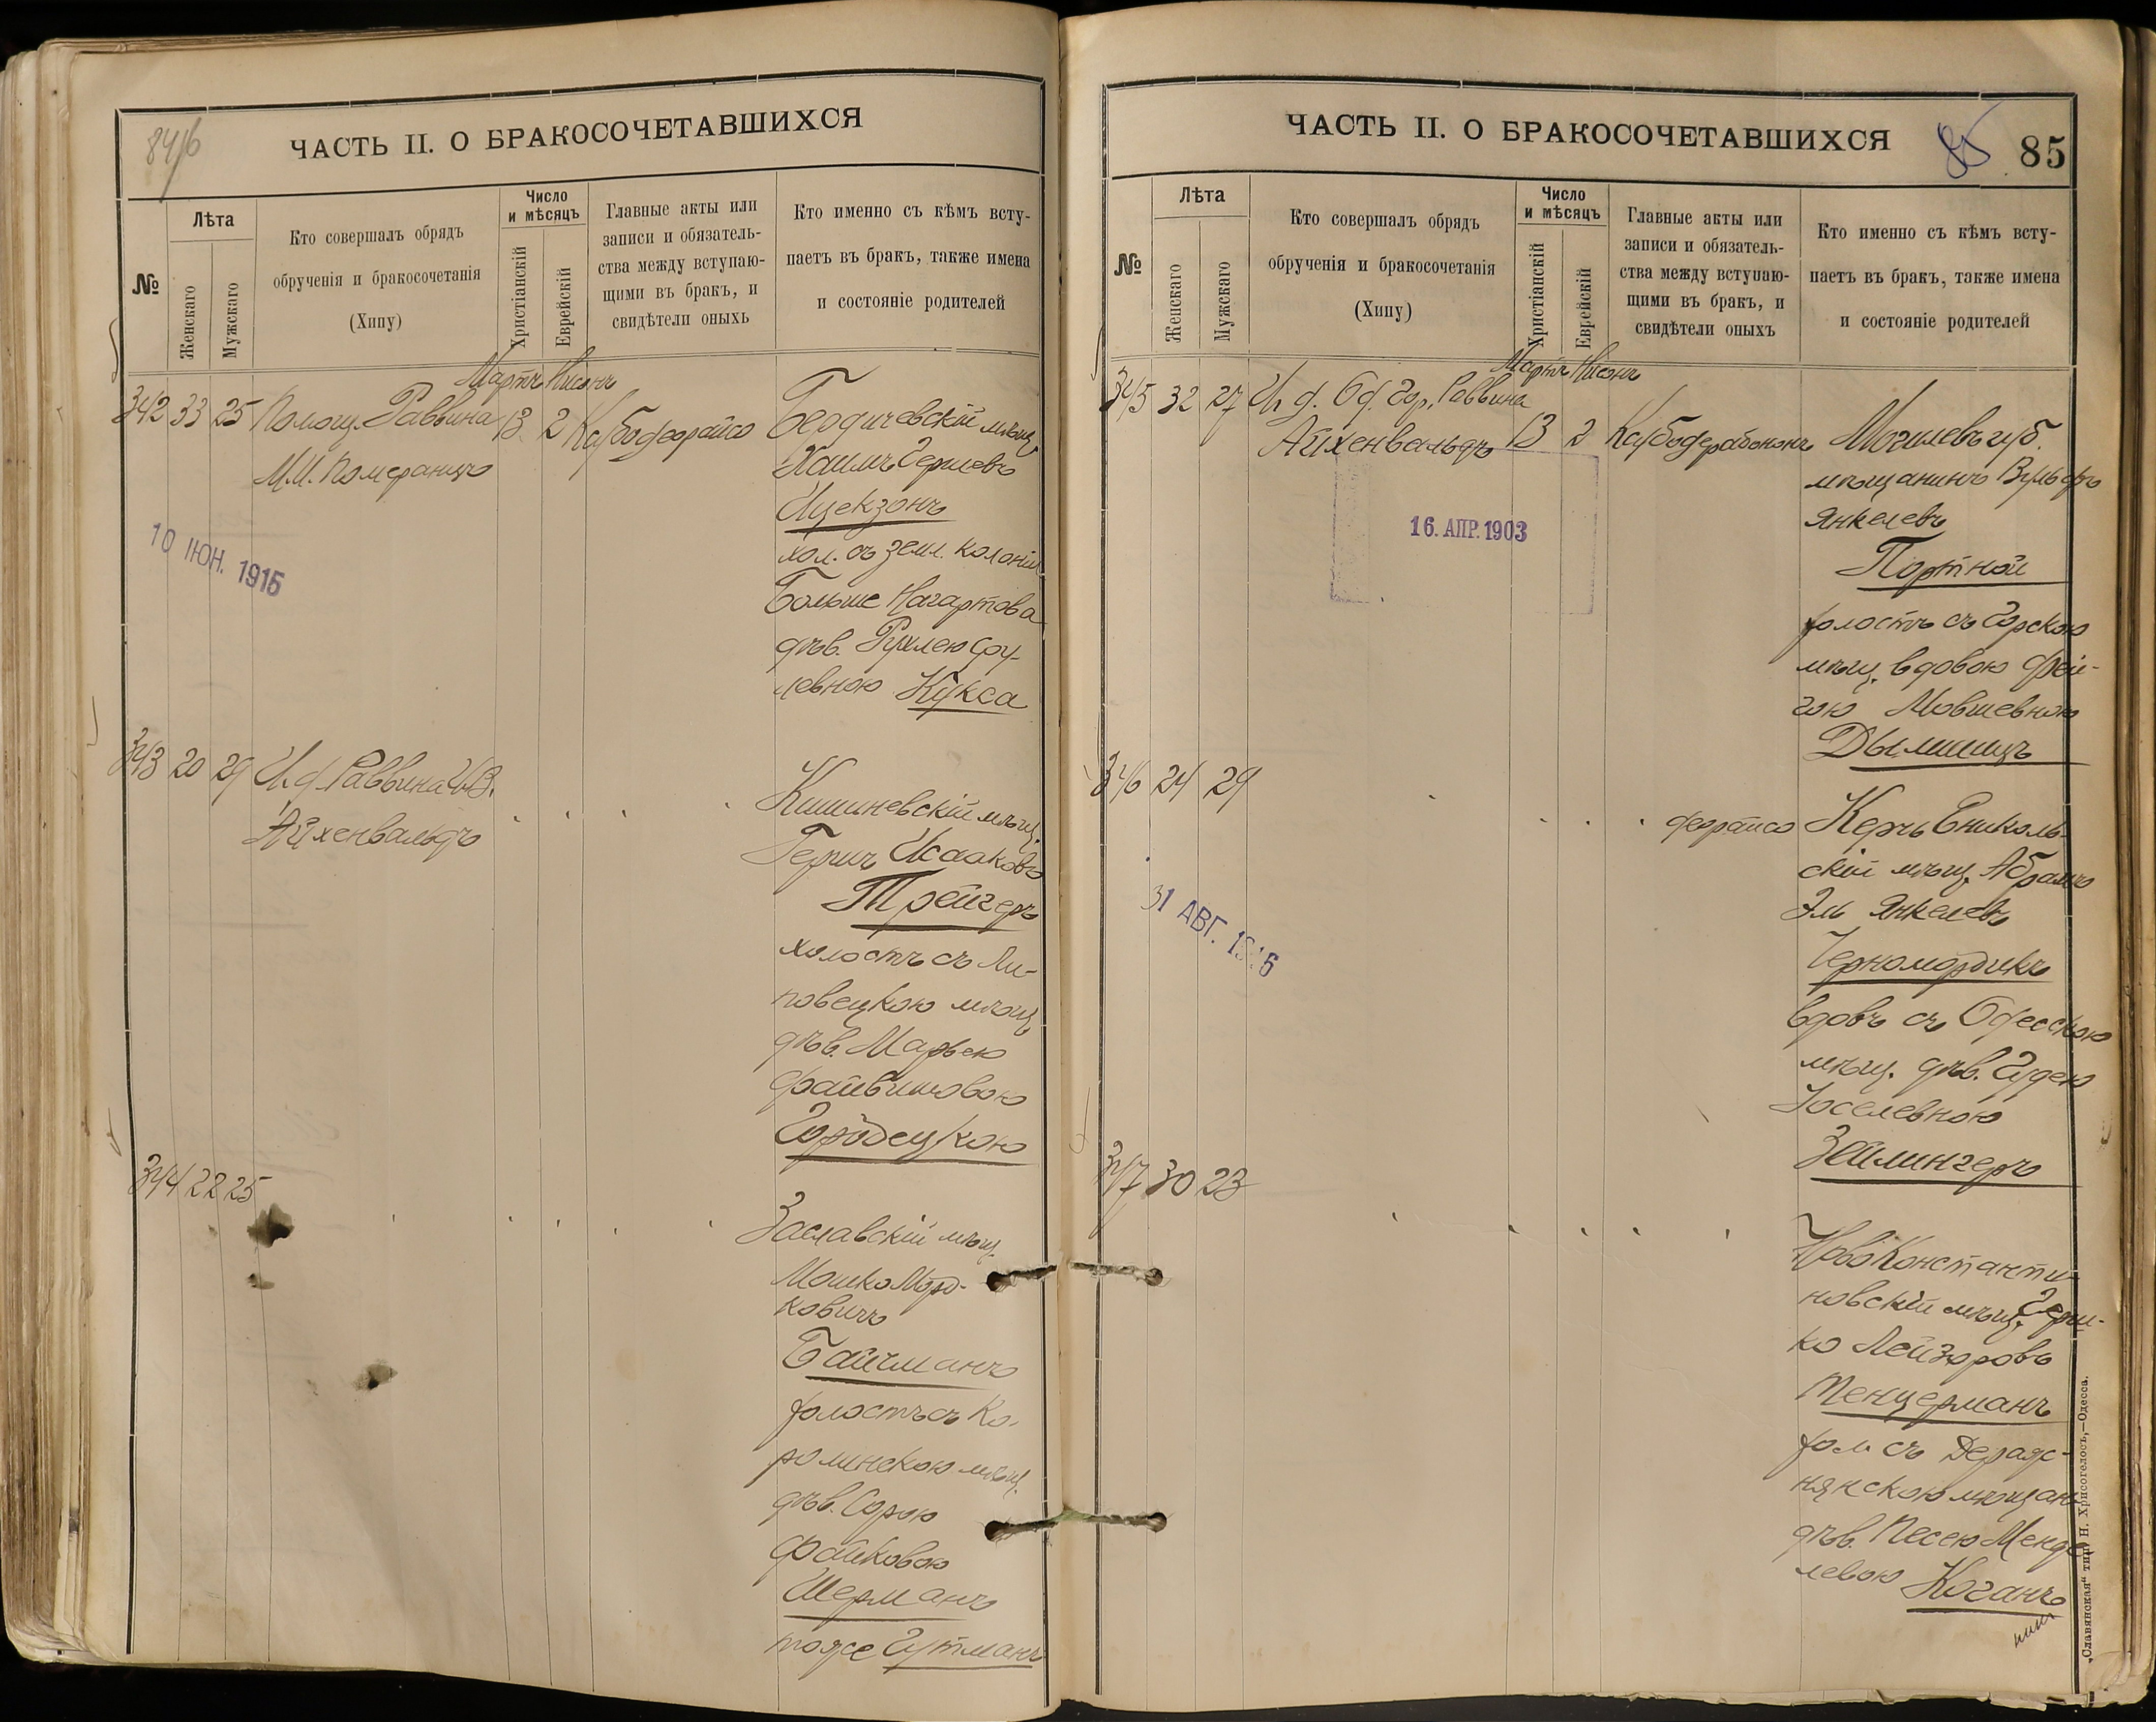 84/б
ЧАСТЬ II. О БРАКОСОЧЕТАВШИХСЯ
№
Лѣта
Женскаго
Мужскаго
Кто совершалъ обрядъ
обрученія и бракосочетанія
(Хипу)
Число
и мѣсяцъ
Христіанскій
Еврейскій
Главные акты или
записи и обязатель-
ства между вступаю-
щими въ бракъ, и
свидѣтели оныхъ
Кто именно съ кѣмъ всту-
паетъ въ бракъ, также имена
и состояніе родителей
Мартъ Нисонъ
342 33 25 Помощ. Раввина 13 2
М.И. Померанцъ
Бердичевскій мѣщ.
Хаимъ Гершевъ
Ицекзонъ
хол. съ земл. колоніи
Больше Нагартова
дѣв. Рухлею Сру-
левною Кукса
10 ІЮН. 1915
343 20 29 И. д. Раввина
Айхенвальдъ
Кишиневскій мѣщ.
Гершъ Исааковъ
Трейгеръ
холостъ съ Ли-
повецкою мѣщ.
дѣв. Марьею
Файвишовою
Городецкою
344 22 25
Заславскій мѣщ.
Мошко Мор-
ковичъ
Байчманъ
холостъ съ Ко-
ролинскою мѣщ.
дѣв. Сорою
Файковою
Шерманъ
тоже Гутманъ
ЧАСТЬ II. О БРАКОСОЧЕТАВШИХСЯ
85 85
№
Лѣта
Женскаго
Мужскаго
Кто совершалъ обрядъ
обрученія и бракосочетанія
(Хипу)
Число
и мѣсяцъ
Христіанскій
Еврейскій
Главные акты или
записи и обязатель-
ства между вступаю-
щими въ бракъ, и
свидѣтели оныхъ
Кто именно съ кѣмъ всту-
паетъ въ бракъ, также имена
и состояніе родителей
Мартъ Нисонъ
345 32 27 И. д. Од. Гор. Раввина
Айхенвальдъ 13 2
Могилевъ губ.
мѣщанинъ Вульфъ
Янкелевъ
Портной
холостъ съ Горскою
мѣщ. вдовою Фей-
гою Мовшевною
Дымшицъ
16. АПР. 1903
346 24 29
Керчь Ениколь-
скій мѣщ. Абрамъ
Эль Янкелевъ
Черномордикъ
вдовъ съ Одесскою
мѣщ. дѣв. Гудею
Іоселевною
Зейлингеръ
31 АВГ.
347 30 23
НовоКонстанти-
новскій мѣщ. Герш-
ко Лейзоровъ
Тенцерманъ
хол. съ Дераж-
нянскою мѣщан.
дѣв. Песею Менде
левою Коганъ
„Славянская“ тип. Н. Хрисогелосъ,—Одесса.